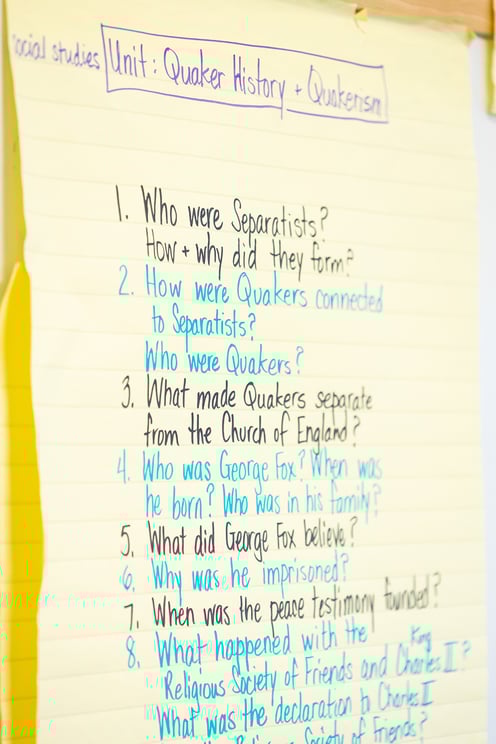 social studies
Unit: Quaker History + Quakerism
1. Who were Separatists?
How + why did they form?
2. How were Quakers connected
to Separatists?
Who were Quakers?
3. What made Quakers separate
from the Church of England?
4. Who was George Fox? When was
he born? Who was in his family?
5. What did George Fox believe?
6. Why was he imprisoned?
7. When was the peace testimony founded?
8. What happened with the
Religious Society of Friends and King Charles II?
What was the declaration to Charles II
the Religious Society of Friends?